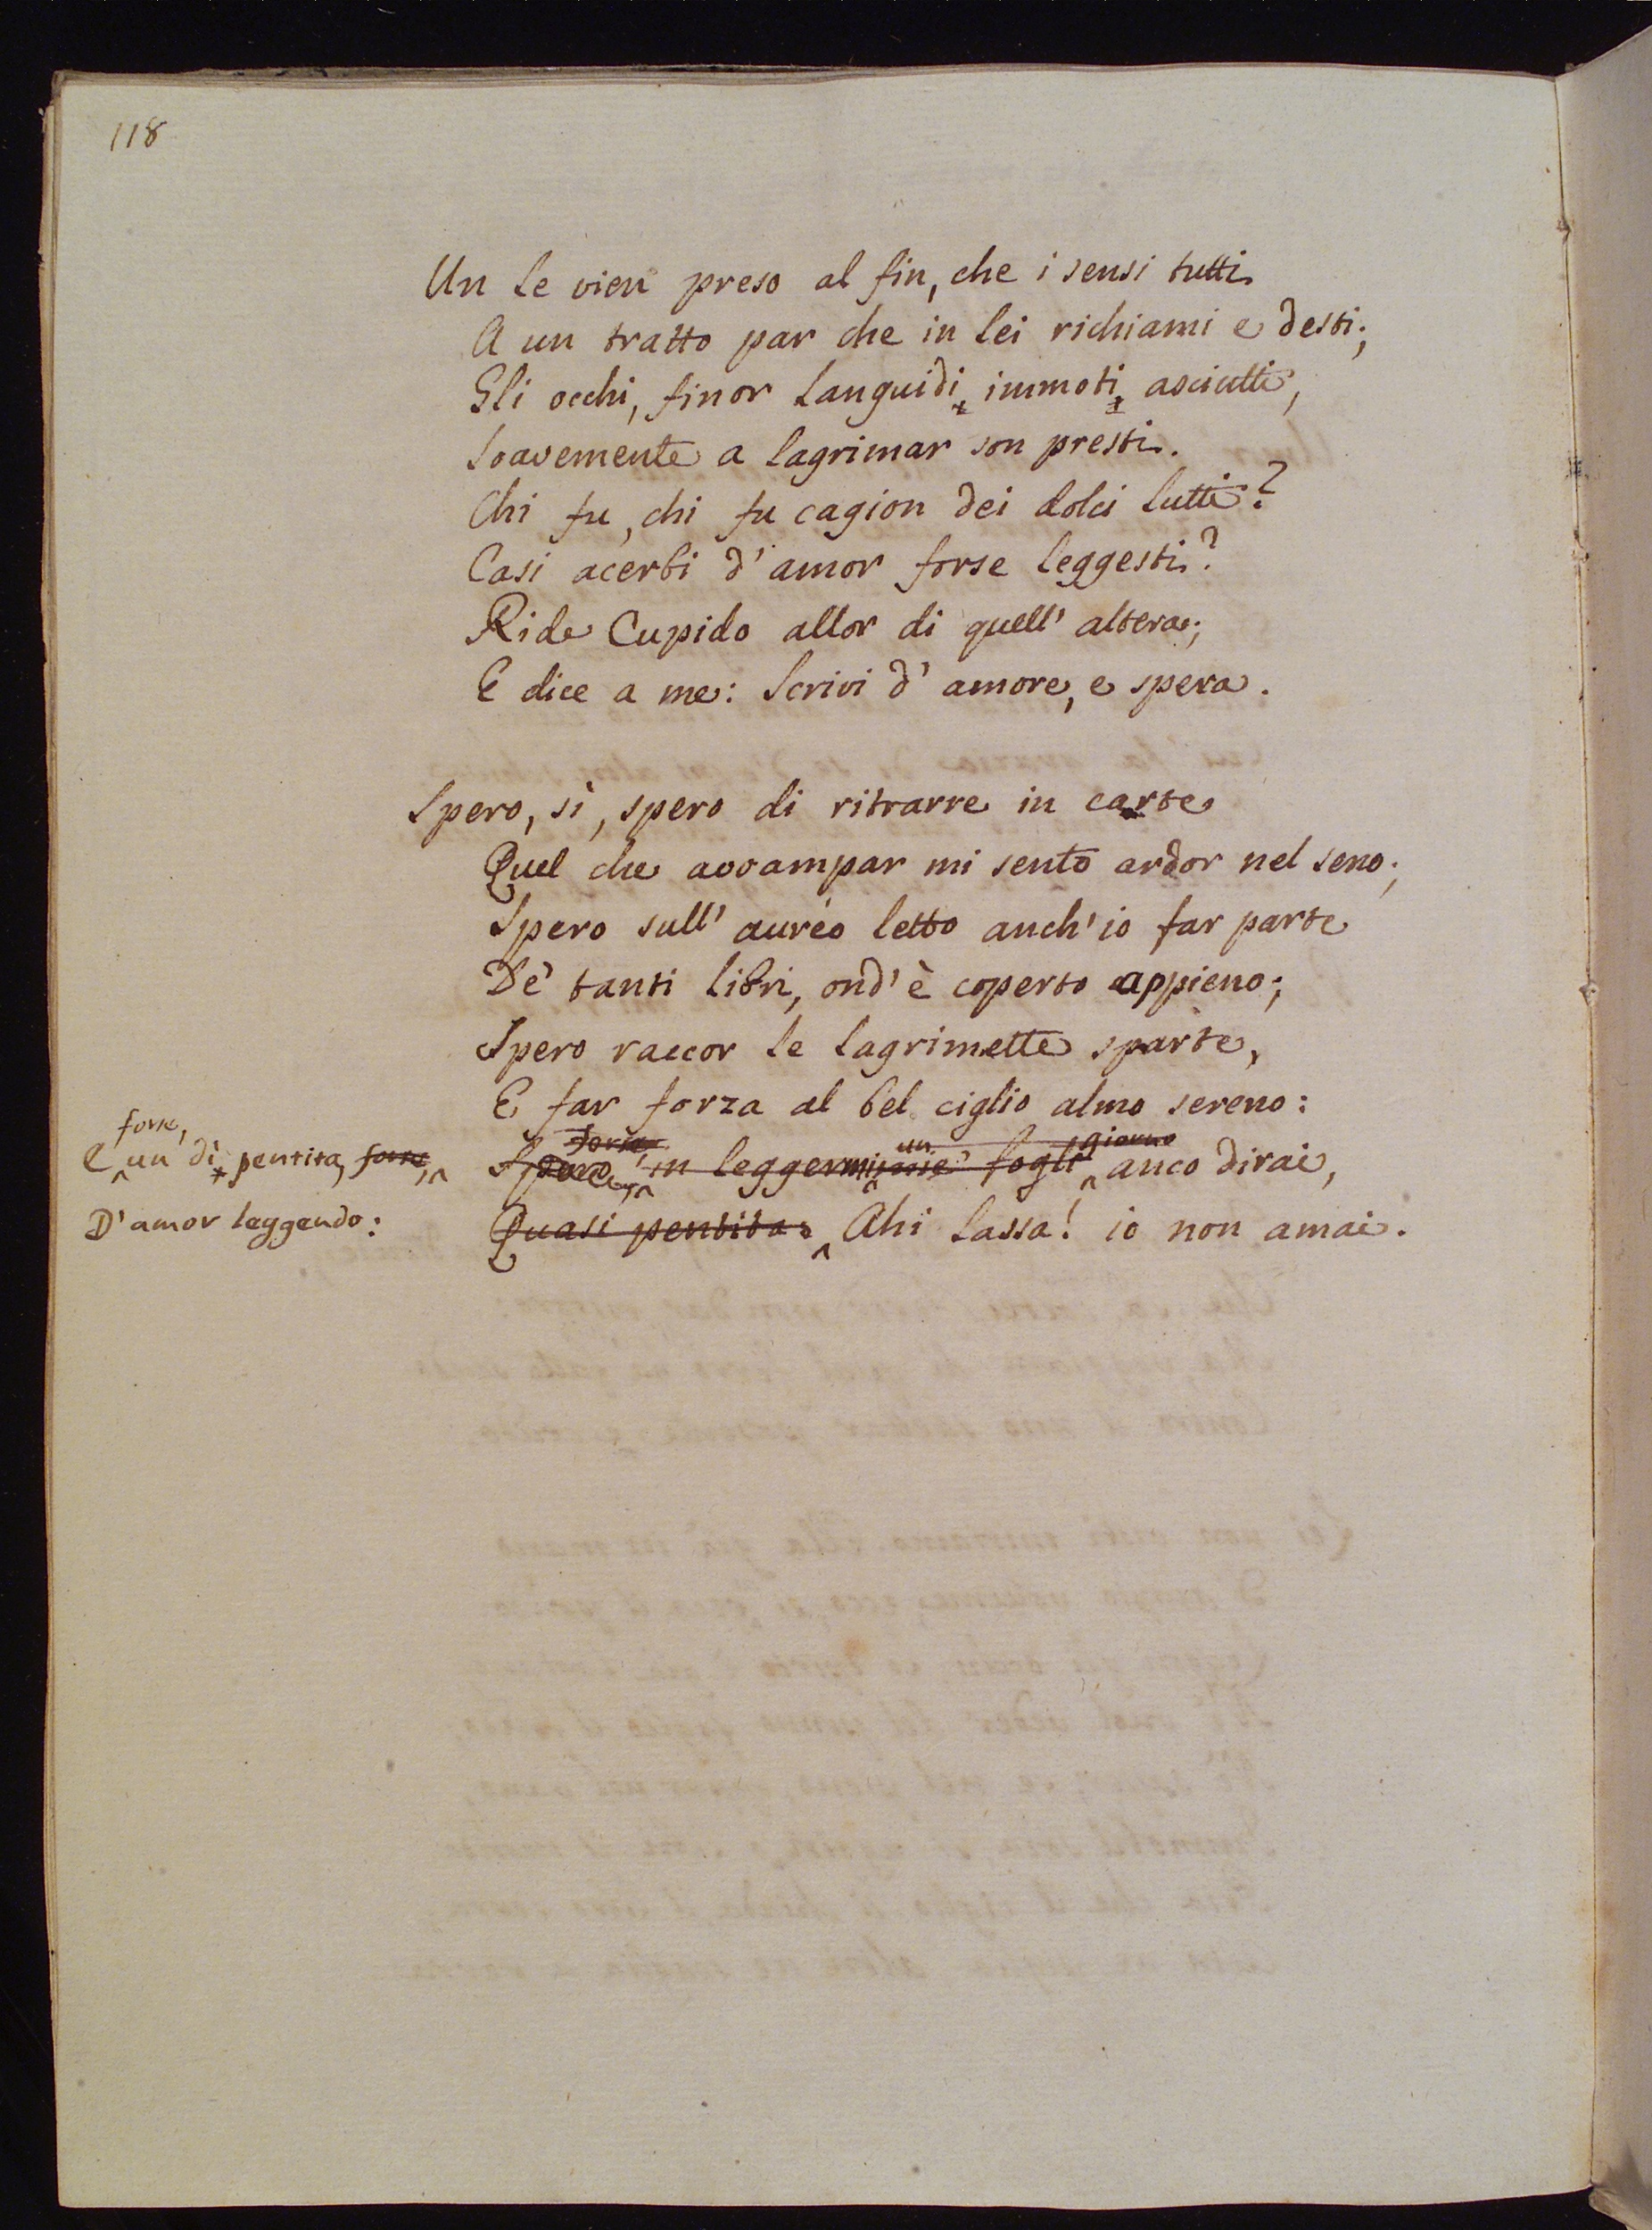 118
Un le vien preso al fin, che i sensi tutti
A un tratto par che in lei richiami e desti;
Gli occhi, finor languidi, immoti, asciutti,
Soavemente a lagrimar son presti.
Chi fu, chi fu cagion dei dolci lutti?
Casi acerbi d'amor forse leggesti?
Ride Cupido allor di quell' altera;
E dice a me: Scrivi d'amore, e spera.
Spero, sì, spero di ritrarre in carte
Quel che avvampar mi sento ardor nel seno;
Spero sull' aureo letto anch'io far parte
De' tanti libri, ond'è coperto appieno;
Spero raccor le lagrimette sparte,
E far forza al bel ciglio almo sereno:
forse,
E un dì pentita, forse,
forse, un giorno
in leggermi fogli anco dirai,
D'amor leggendo:
Quasi pentita: Ahi lassa! io non amai.